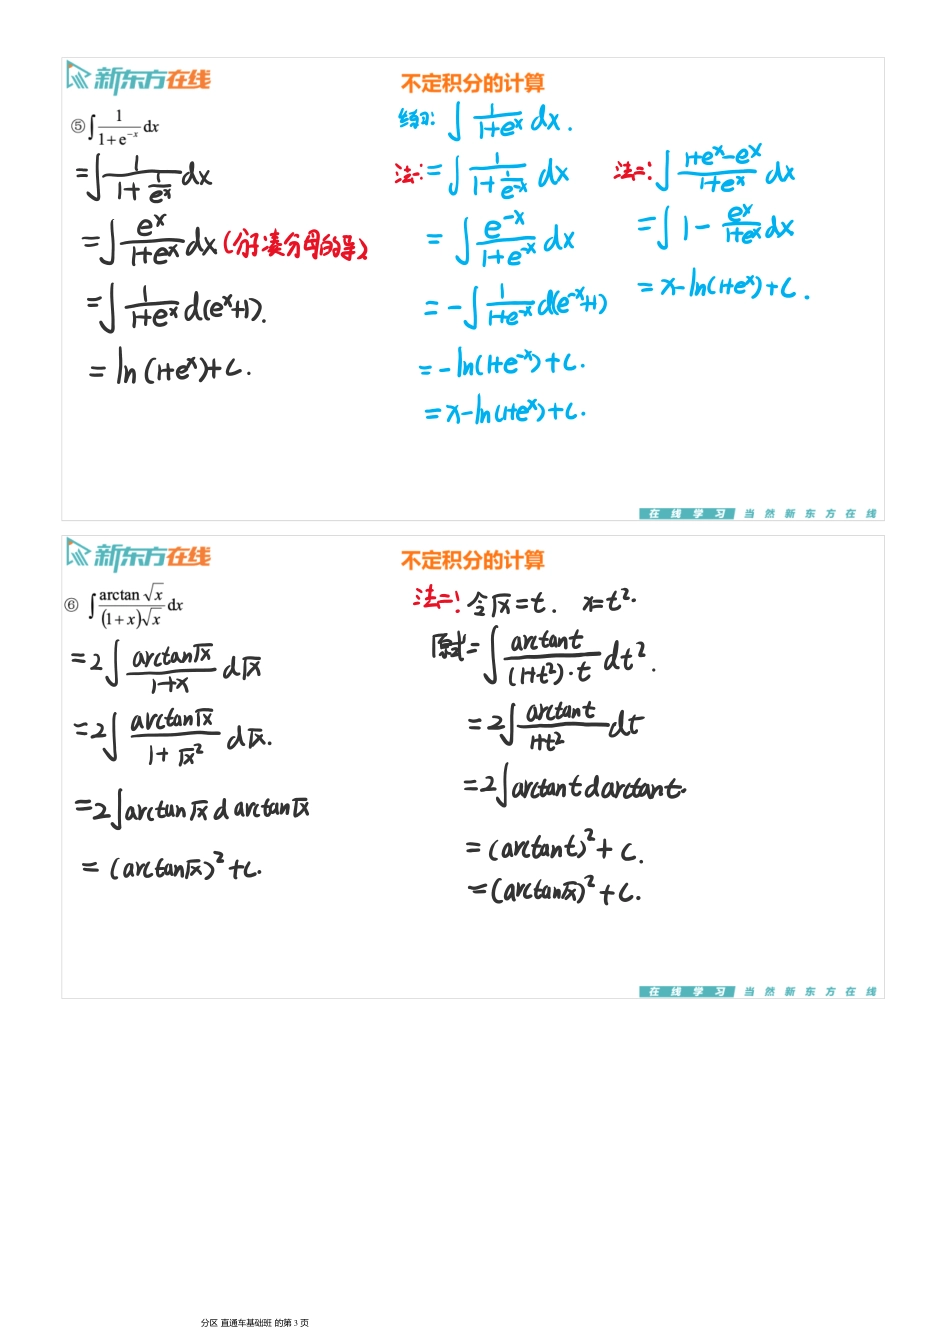 新东方在线
不定积分的计算
⑤ ∫ 1/(1+e^{-x}) dx
= ∫ 1/(1+1/e^x) dx
= ∫ e^x/(1+e^x) dx (分子凑分母的导)
= ∫ 1/(1+e^x) d(e^x+1).
= ln(1+e^x)+C.
练习: ∫ 1/(1+e^x) dx.
法一: = ∫ 1/(1+1/e^{-x}) dx
= ∫ e^{-x}/(1+e^{-x}) dx
= -∫ 1/(1+e^{-x}) d(e^{-x}+1)
= -ln(1+e^{-x})+C.
= x-ln(1+e^x)+C.
法二: ∫ (1+e^x-e^x)/(1+e^x) dx
= ∫ 1 - e^x/(1+e^x) dx
= x-ln(1+e^x)+C.
在线学习 当然新东方在线
新东方在线
不定积分的计算
⑥ ∫ arctan√x/((1+x)√x) dx
= 2∫ arctan√x/(1+x) d√x
= 2∫ arctan√x/(1+√x²) d√x.
= 2∫ arctan√x d arctan√x
= (arctan√x)²+C.
法二: 令√x=t. x=t².
原式= ∫ arctant/((1+t²)·t) dt².
= 2∫ arctant/(1+t²) dt
= 2∫ arctant d arctant.
= (arctant)²+C.
= (arctan√x)²+C.
在线学习 当然新东方在线
分区 直通车基础班 的第 3 页